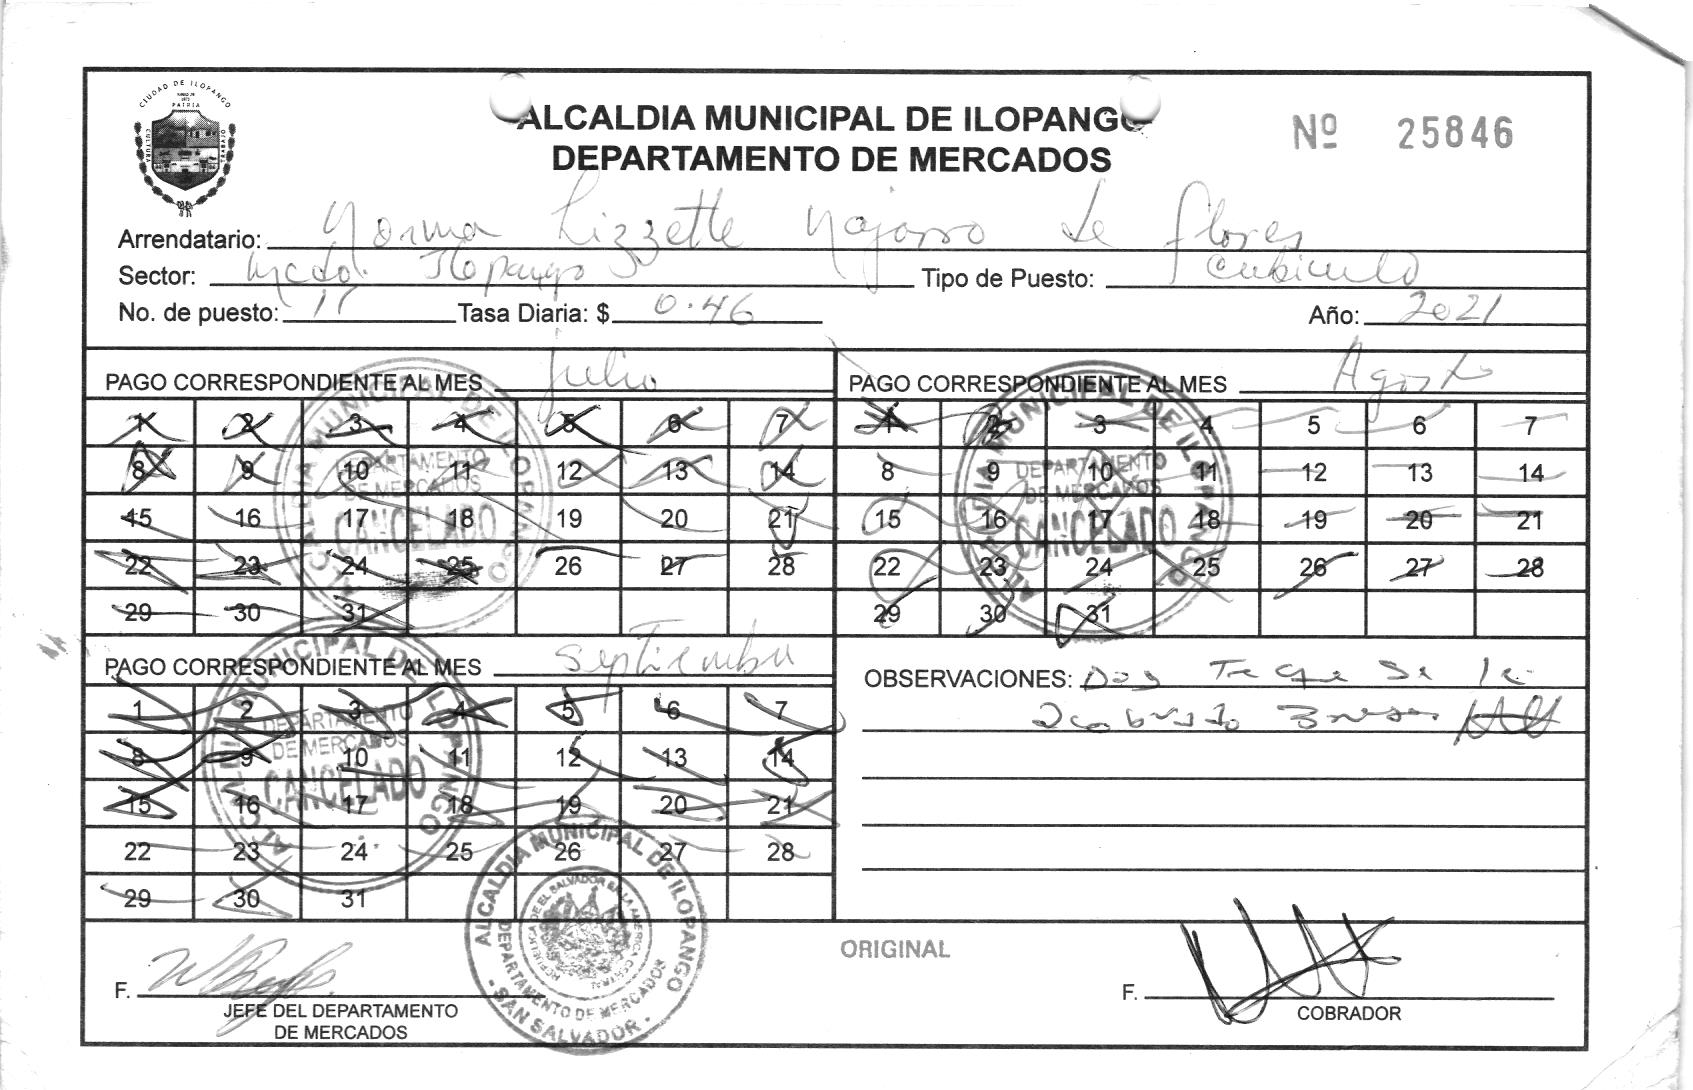 CIUDAD DE ILOPANGO
PATRIA
CULTURA
TRABAJO
ALCALDIA MUNICIPAL DE ILOPANGO
DEPARTAMENTO DE MERCADOS
Nº 25846
Arrendatario: Norma Lizzette Najarro de Flores
Sector: Mcdo. Ilopango
Tipo de Puesto: Cubiculo
No. de puesto: 11 Tasa Diaria: $ 0.46 Año: 2021
PAGO CORRESPONDIENTE AL MES Julio
1 2 3 4 5 6 7
8 9 10 11 12 13 14
15 16 17 18 19 20 21
22 23 24 25 26 27 28
29 30 31
ALCALDIA MUNICIPAL DE ILOPANGO
DEPARTAMENTO
DE MERCADOS
CANCELADO
PAGO CORRESPONDIENTE AL MES Agosto
1 2 3 4 5 6 7
8 9 10 11 12 13 14
15 16 17 18 19 20 21
22 23 24 25 26 27 28
29 30 31
ALCALDIA MUNICIPAL DE ILOPANGO
DEPARTAMENTO
DE MERCADOS
CANCELADO
PAGO CORRESPONDIENTE AL MES Septiembre
1 2 3 4 5 6 7
8 9 10 11 12 13 14
15 16 17 18 19 20 21
22 23 24 25 26 27 28
29 30 31
ALCALDIA MUNICIPAL DE ILOPANGO
DEPARTAMENTO
DE MERCADOS
CANCELADO
OBSERVACIONES: Se
ALCALDIA MUNICIPAL DE ILOPANGO
DEPARTAMENTO DE MERCADOS
- SAN SALVADOR -
REPUBLICA DE EL SALVADOR EN LA AMERICA CENTRAL
ORIGINAL
F.
JEFE DEL DEPARTAMENTO
DE MERCADOS
F.
COBRADOR